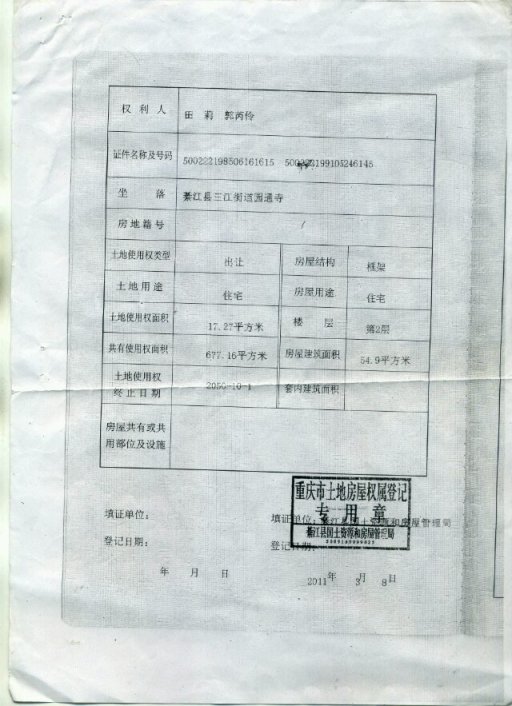 权利人 田 莉 郭芮伶
证件名称及号码 500222198506161615
坐落 綦江县三江街道园通寺
房地籍号 /
土地使用权类型 出让 房屋结构 框架
土地用途 住宅 房屋用途 住宅
土地使用权面积 17.27平方米 楼层 第2层
共有使用权面积 677.16平方米 房屋建筑面积 54.9平方米
土地使用权
终止日期 2050-10-1 套内建筑面积
房屋共有或共
用部位及设施
重庆市土地房屋权属登记
专用章
綦江县国土资源和房屋管理局
填证单位: 填证单位:綦江县国土资源和房屋管理局
登记日期: 登记日期:
年 月 日 2011年 3月 8日